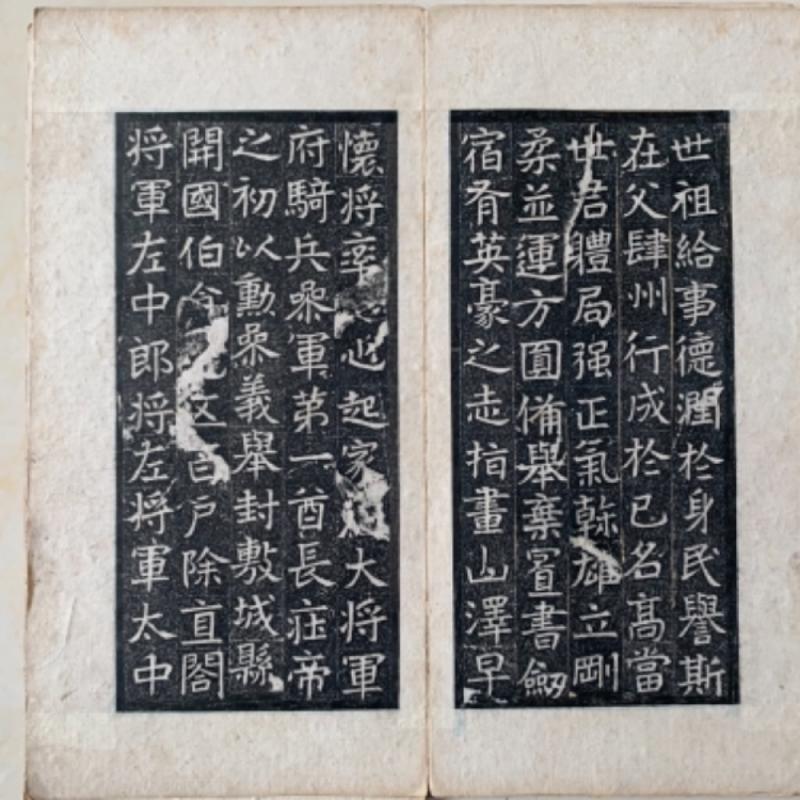 世祖給事德潤於身民譽斯
在父肆州行成於已名高當
世君體局强正氣榦雄立剛
柔並運方圓備舉棄置書劔
宿有英豪之志指畫山澤早
懷將率心起家大將軍
府騎兵參軍第一酋長庄帝
之初以勳參義舉封敷城縣
開國伯食五百戶除直閤
將軍左中郎將左將軍太中